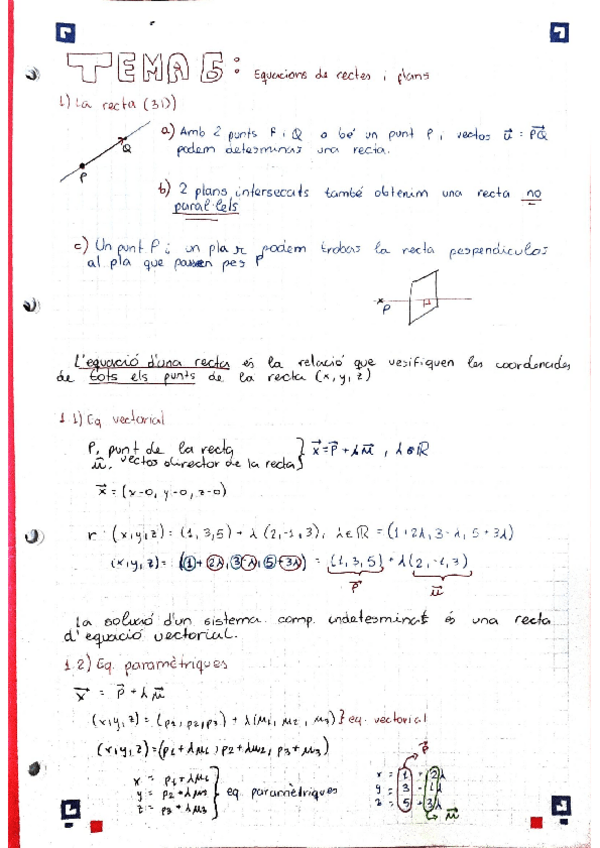 TEMA 5: Equacions de rectes i plans
1) La recta (3D)
a) Amb 2 punts P i Q o bé un punt P i vector u⃗ = PQ⃗
podem determinar una recta.
Q
P
b) 2 plans intersecats també obtenim una recta no
paral·lels
c) Un punt P i un pla π podem trobar la recta perpendicular
al pla que passen per P
P
L'equació d'una recta és la relació que verifiquen les coordenades
de tots els punts de la recta (x, y, z)
1.1) Eq vectorial
P, punt de la recta
u⃗, vector director de la recta } x⃗ = p⃗ + λu⃗ , λ∈ℝ
x⃗ = (x-0, y-0, z-0)
r (x,y,z) = (1, 3, 5) + λ (2, -1, 3), λ∈ℝ = (1+2λ, 3-λ, 5+3λ)
(x,y,z) = (1+2λ, 3-λ, 5+3λ) = (1, 3, 5) + λ(2, -1, 3)
p⃗ u⃗
La solució d'un sistema comp. indeterminat és una recta
d'equació vectorial.
1.2) Eq. paramètriques
x⃗ = p⃗ + λu⃗
(x,y,z) = (p1, p2, p3) + λ(u1, u2, u3) } eq. vectorial
(x,y,z) = (p1+λu1, p2+λu2, p3+λu3)
x = p1+λu1
y = p2+λu2 } eq paramètriques
z = p3+λu3
p⃗
x = 1 + 2λ
y = 3 - 1λ
z = 5 + 3λ
u⃗